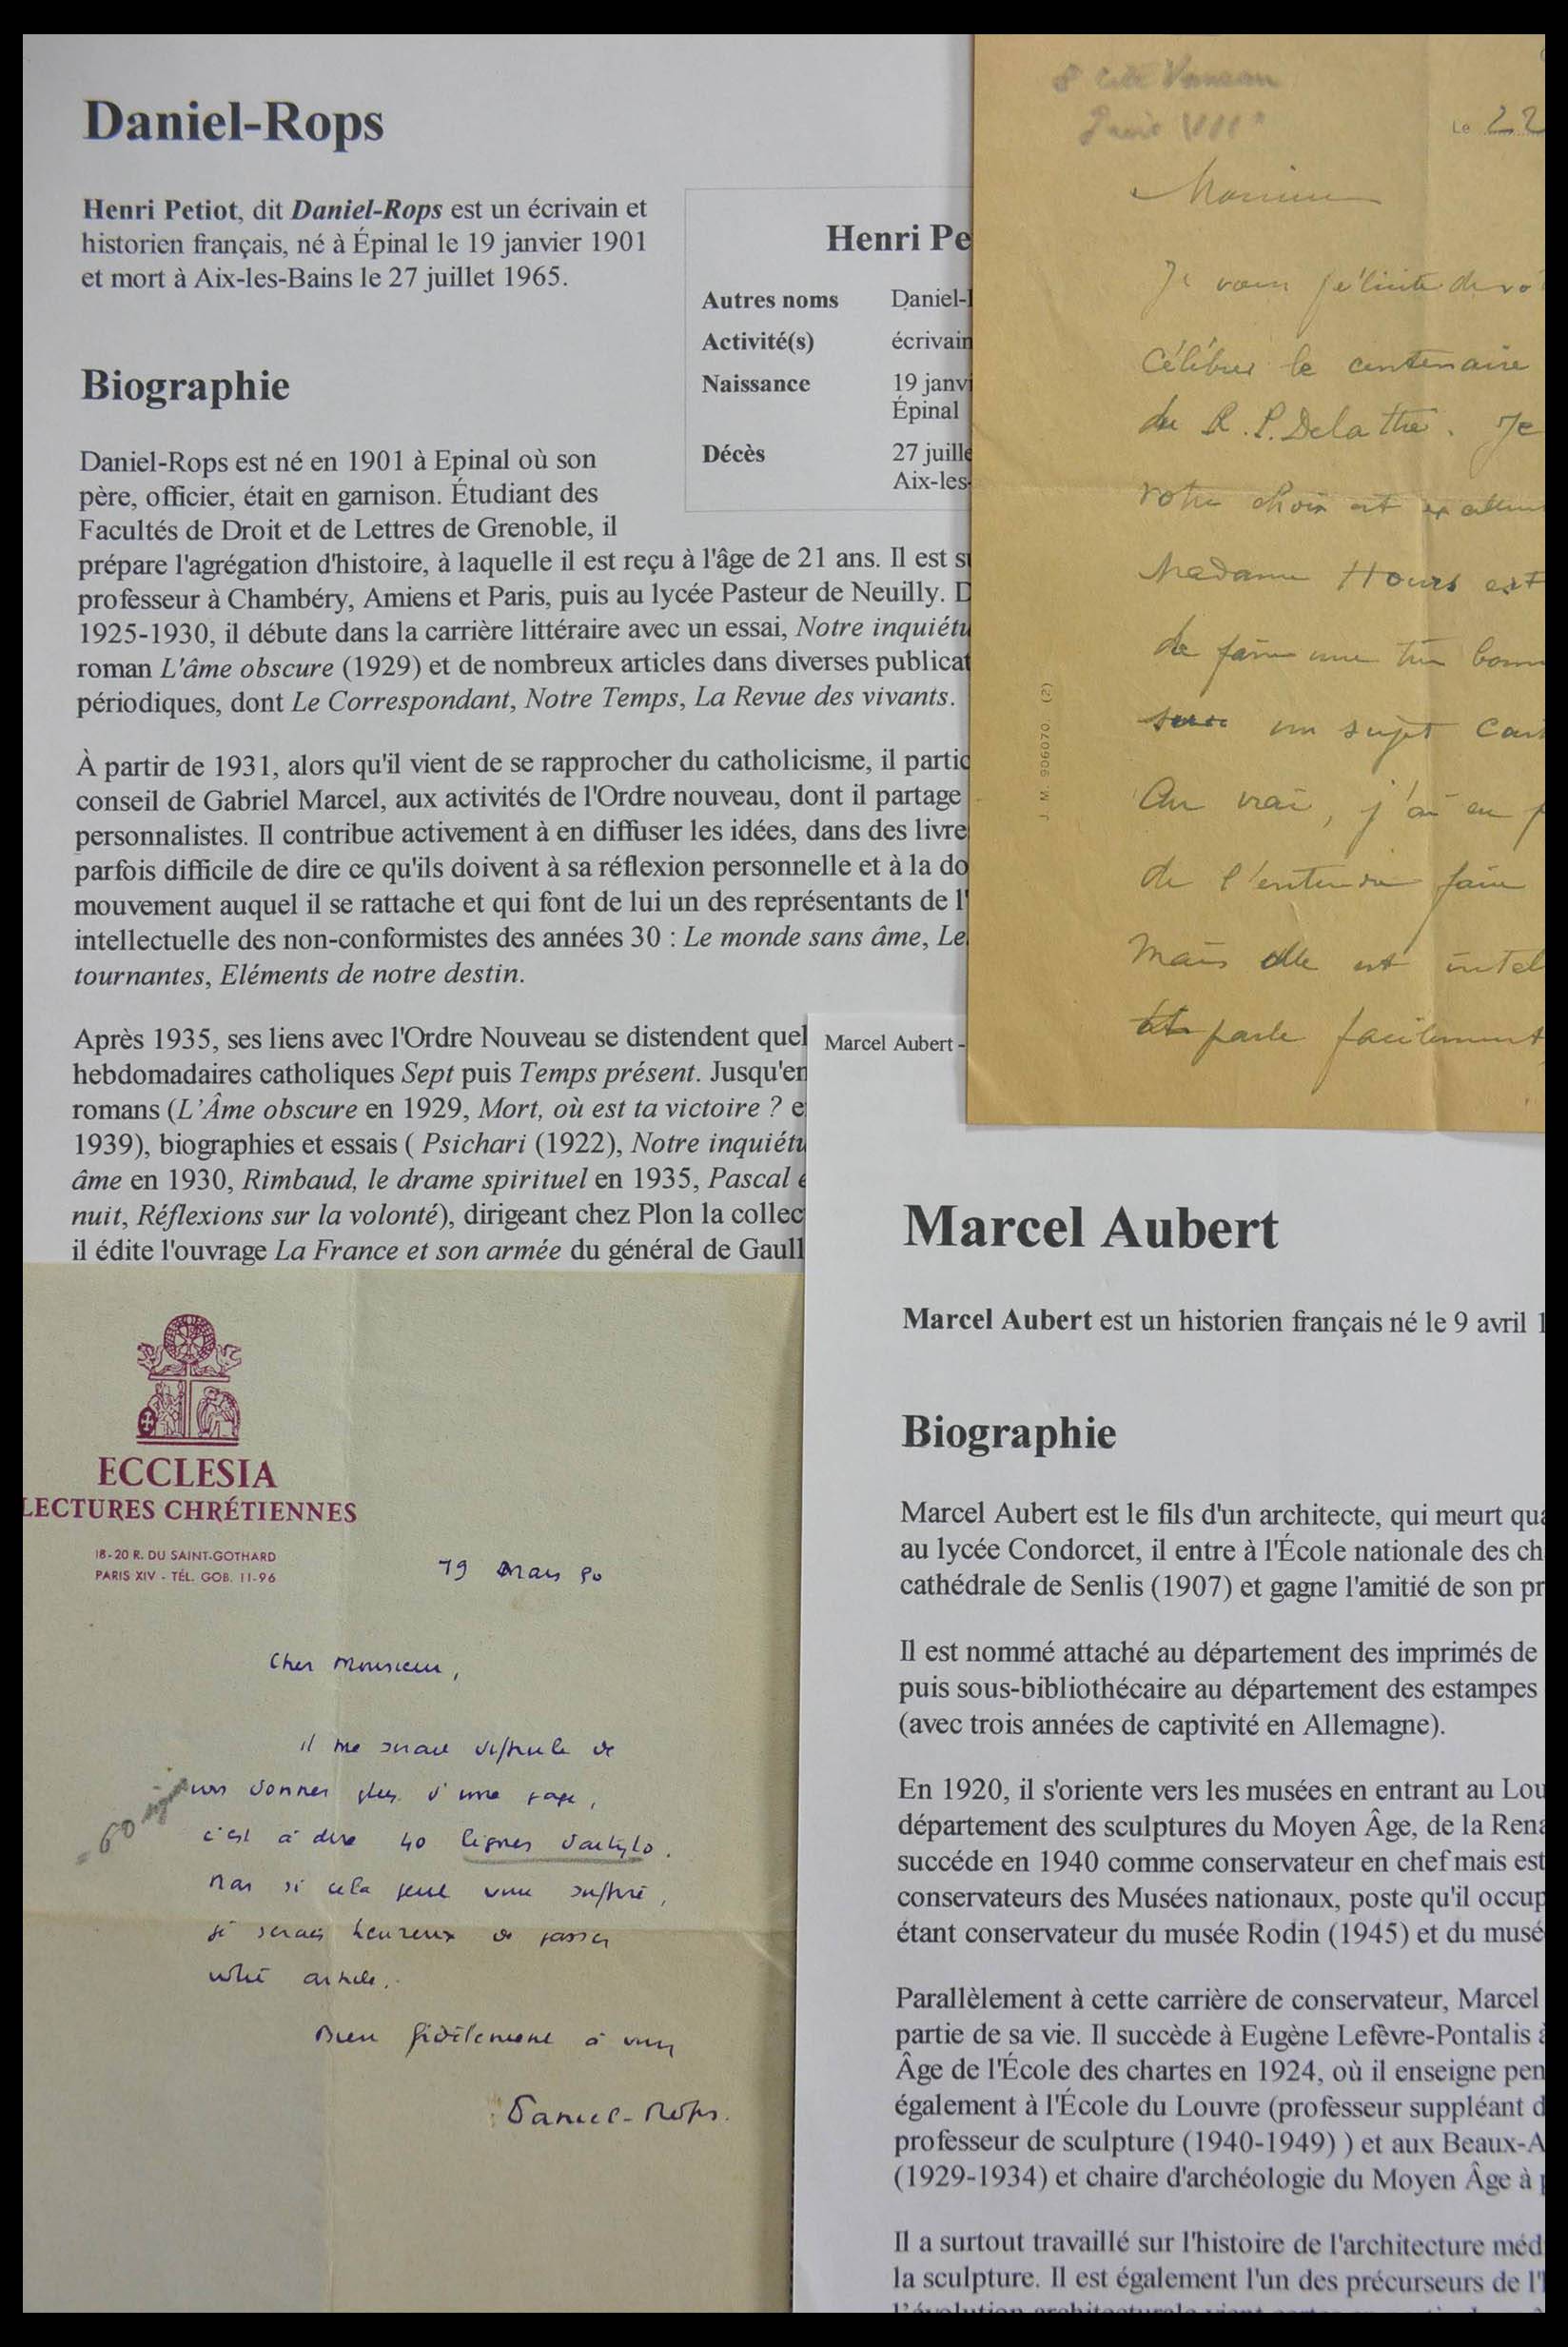 Daniel-Rops
Henri Petiot, dit Daniel-Rops est un écrivain et
historien français, né à Épinal le 19 janvier 1901
et mort à Aix-les-Bains le 27 juillet 1965.
Henri Pe
Autres noms Daniel-
Activité(s) écrivain
Naissance 19 janvi
Épinal
Décès 27 juille
Aix-les-
Biographie
Daniel-Rops est né en 1901 à Epinal où son
père, officier, était en garnison. Étudiant des
Facultés de Droit et de Lettres de Grenoble, il
prépare l'agrégation d'histoire, à laquelle il est reçu à l'âge de 21 ans. Il est s
professeur à Chambéry, Amiens et Paris, puis au lycée Pasteur de Neuilly. D
1925-1930, il débute dans la carrière littéraire avec un essai, Notre inquiétu
roman L'âme obscure (1929) et de nombreux articles dans diverses publicat
périodiques, dont Le Correspondant, Notre Temps, La Revue des vivants.
À partir de 1931, alors qu'il vient de se rapprocher du catholicisme, il partic
conseil de Gabriel Marcel, aux activités de l'Ordre nouveau, dont il partage
personnalistes. Il contribue activement à en diffuser les idées, dans des livre
parfois difficile de dire ce qu'ils doivent à sa réflexion personnelle et à la do
mouvement auquel il se rattache et qui font de lui un des représentants de l'
intellectuelle des non-conformistes des années 30 : Le monde sans âme, Le
tournantes, Eléments de notre destin.
Après 1935, ses liens avec l'Ordre Nouveau se distendent quel
hebdomadaires catholiques Sept puis Temps présent. Jusqu'en
romans (L'Âme obscure en 1929, Mort, où est ta victoire ? e
1939), biographies et essais ( Psichari (1922), Notre inquiétu
âme en 1930, Rimbaud, le drame spirituel en 1935, Pascal e
nuit, Réflexions sur la volonté), dirigeant chez Plon la collec
il édite l'ouvrage La France et son armée du général de Gaull
8 cité Vaneau
Paris VII
Le 22
Monsieur
Je vous félicite de vo
Célébrer le centenaire
du R.P. Delattre. Je
votre choix est excellen
Madame Hours est
de faire une très bonn
sur un sujet
Au vrai, j'ai eu p
de l'entendre faire
Mais elle est intel
et parle facilement
J. M. 906070. (2)
ECCLESIA
LECTURES CHRÉTIENNES
18-20 R. DU SAINT-GOTHARD
PARIS XIV - TÉL. GOB. 11-96
19 Mars 50
Cher Monsieur,
il me serait difficile de
vous donner plus d'une page,
c'est à dire 40 lignes dactylo.
60
Mais si cela peut vous suffire,
je serais heureux de passer
votre article.
Bien fidèlement à vous
Daniel-Rops.
Marcel Aubert -
Marcel Aubert
Marcel Aubert est un historien français né le 9 avril 1
Biographie
Marcel Aubert est le fils d'un architecte, qui meurt qua
au lycée Condorcet, il entre à l'École nationale des ch
cathédrale de Senlis (1907) et gagne l'amitié de son pr
Il est nommé attaché au département des imprimés de
puis sous-bibliothécaire au département des estampes
(avec trois années de captivité en Allemagne).
En 1920, il s'oriente vers les musées en entrant au Lou
département des sculptures du Moyen Âge, de la Rena
succéde en 1940 comme conservateur en chef mais est
conservateurs des Musées nationaux, poste qu'il occup
étant conservateur du musée Rodin (1945) et du musé
Parallèlement à cette carrière de conservateur, Marcel
partie de sa vie. Il succède à Eugène Lefèvre-Pontalis à
Âge de l'École des chartes en 1924, où il enseigne pen
également à l'École du Louvre (professeur suppléant d
professeur de sculpture (1940-1949) ) et aux Beaux-A
(1929-1934) et chaire d'archéologie du Moyen Âge à p
Il a surtout travaillé sur l'histoire de l'architecture méd
la sculpture. Il est également l'un des précurseurs de l'